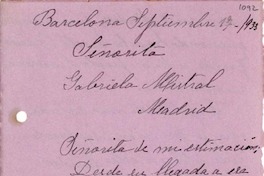 1092
Barcelona Septiembre 17-/933
Señorita
Gabriela Mistral
Madrid
Señorita de mi estimación,
Desde su llegada a esa